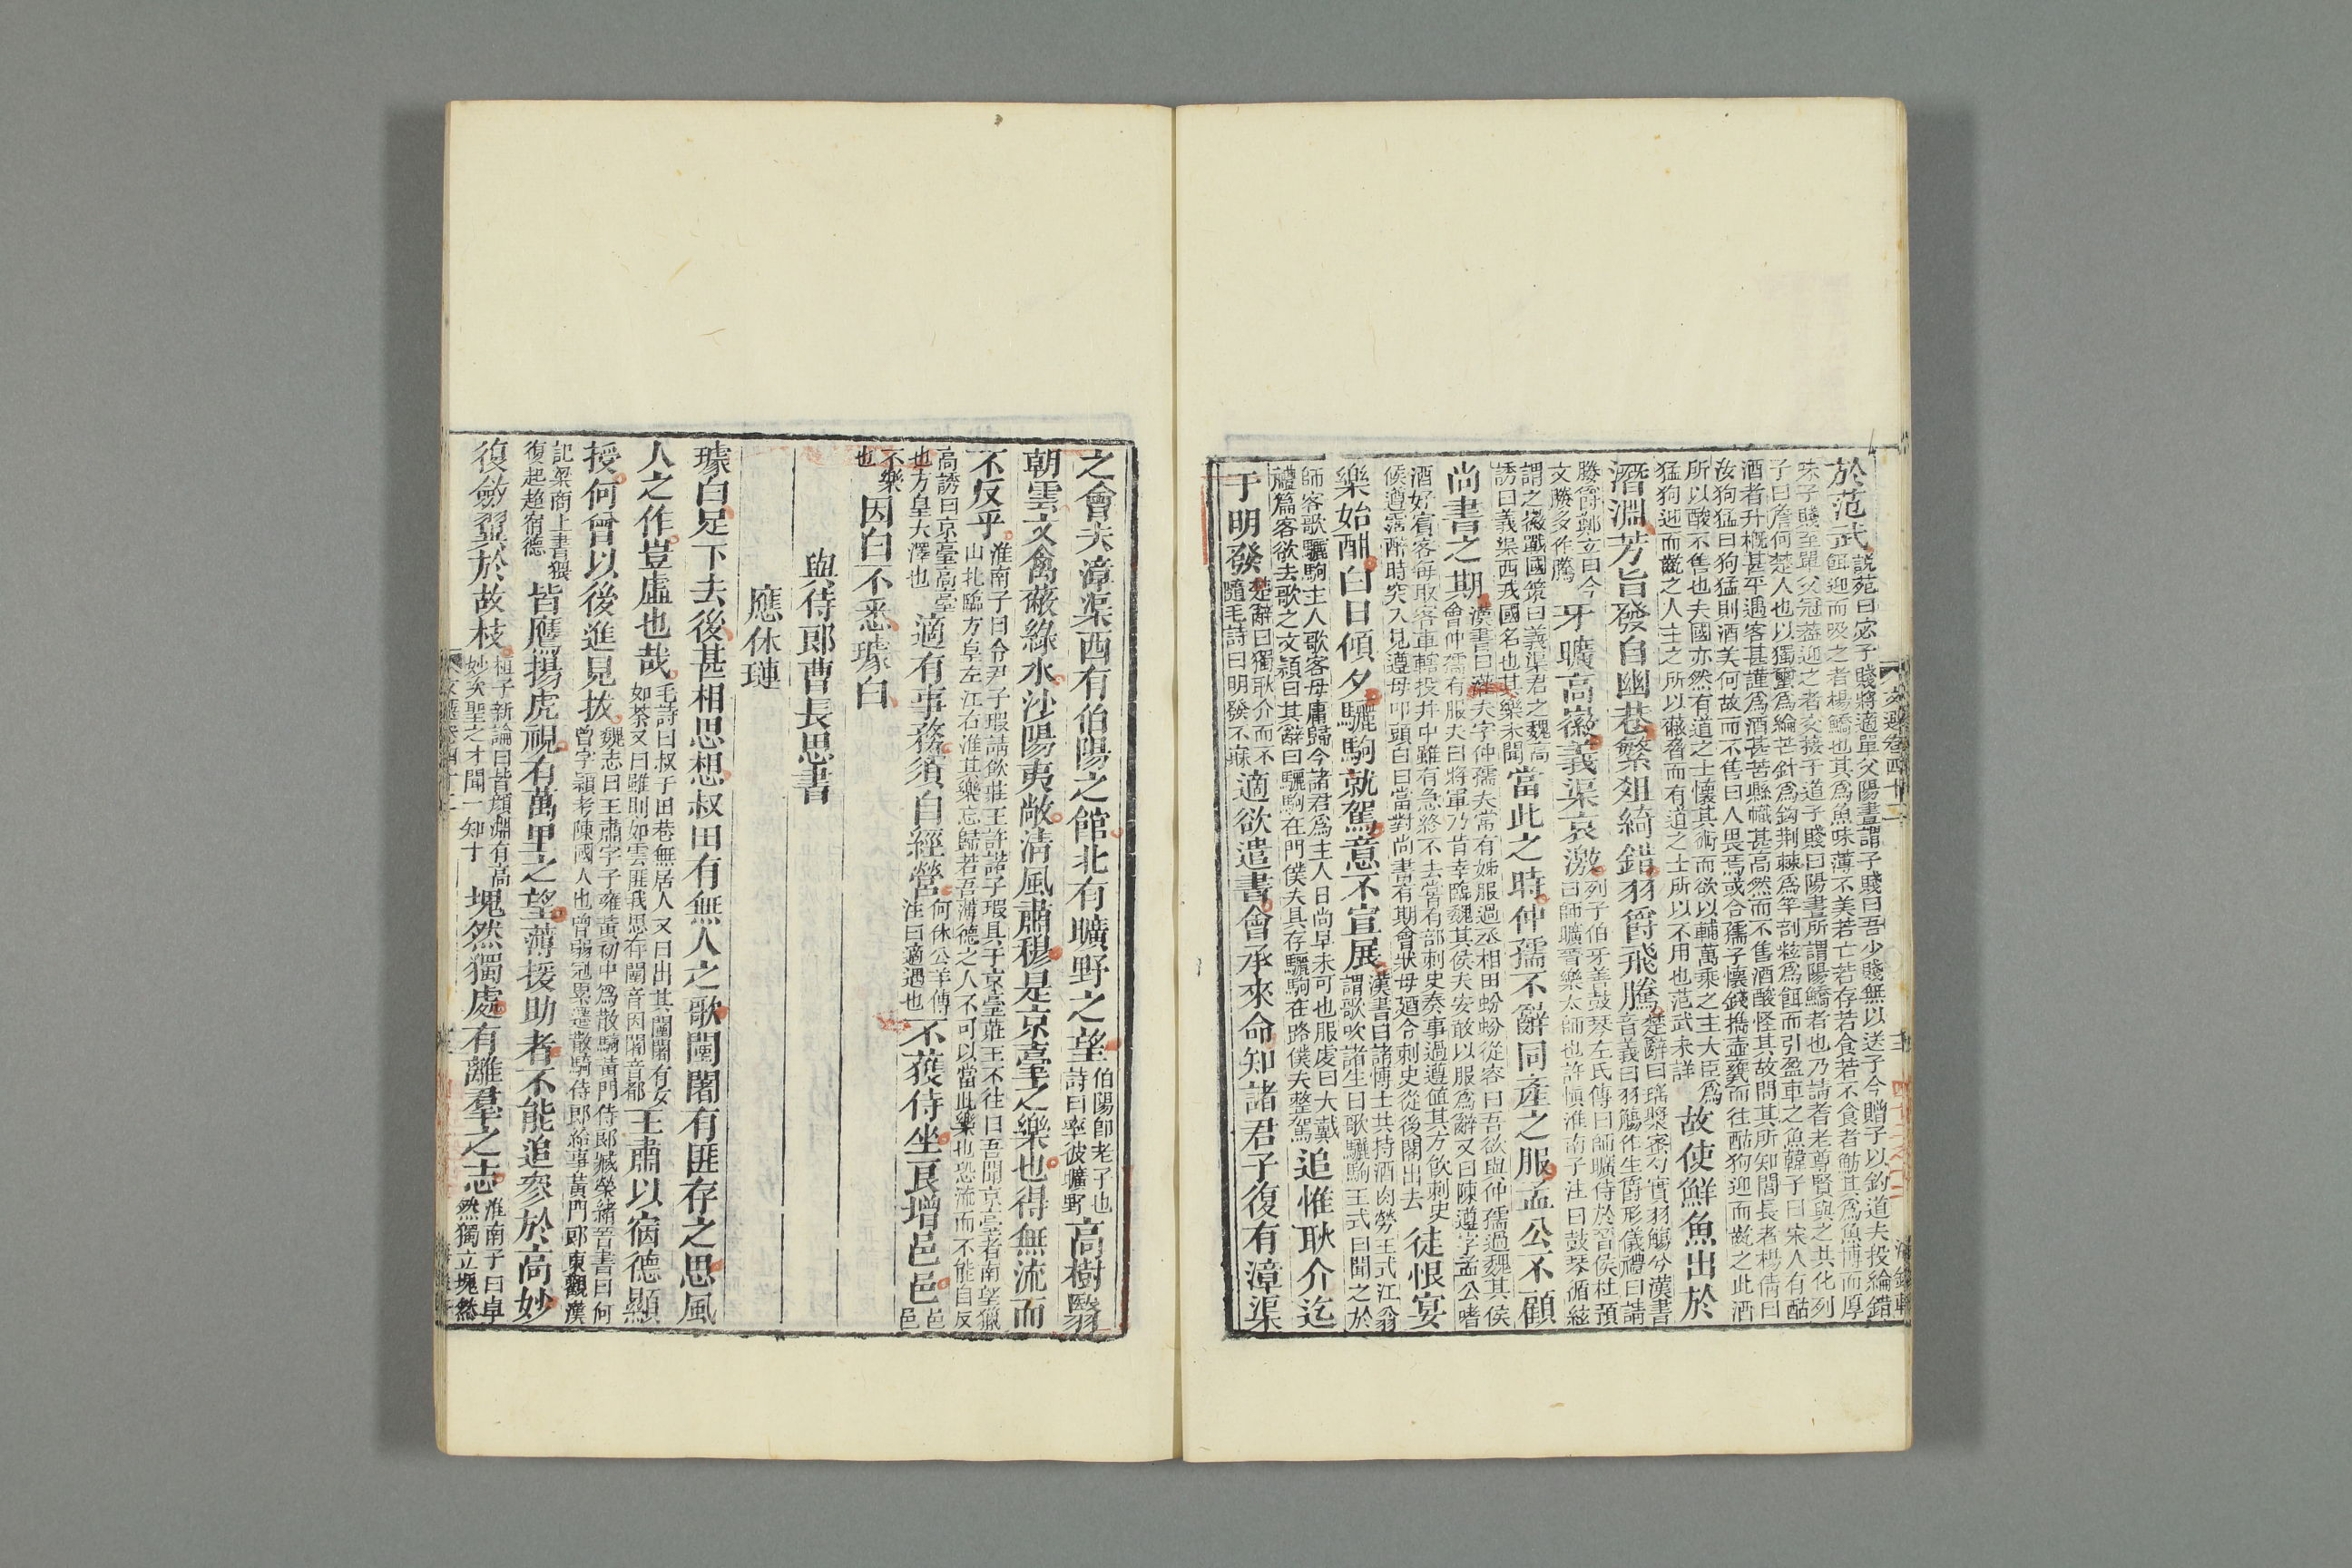 於范武說苑曰宓子賤將適單父陽晝謂子賤曰吾少賤無以送子今贈子以釣道夫投綸錯
餌迎而吸之者楊鱎也其爲魚味薄不美若亡若存若食若不食者魴其爲魚博而厚
味子賤至單父冠蓋迎之者交接于道子賤曰陽晝所謂陽鱎者也乃請者老尊賢與之共化列
子曰詹何楚人也以獨璽爲綸芒針爲鈎荆棘爲竿剖粒爲餌而引盈車之魚韓子曰宋人有酤
酒者升概甚平遇客甚謹爲酒甚苦縣幟甚高然而不售酒酸怪其故問其所知閭長者楊倩曰
汝狗猛曰狗猛則酒美何故而不售曰人畏焉或令孺子懷錢挩壺甕而往酤狗迎而齕之此酒
所以酸不售也夫國亦然有道之士懷其術而欲以輔萬乘之主大臣爲
猛狗迎而齕之人主之所以蔽脅而有道之士所以不用也范武未詳故使鮮魚出於
潛淵芳旨發自幽巷繁俎綺錯羽爵飛騰楚辭曰瑤漿蜜勺實羽觴兮漢書
音義曰羽觴作生爵形儀禮曰請
媵爵鄭玄曰今
文媵多作騰牙曠高徽義渠哀激列子伯牙善鼓琴左氏傳曰師曠侍於晉侯杜預
曰師曠晉樂太師也許愼淮南子注曰鼓琴循絃
謂之徽戰國策曰義渠君之魏高
誘曰義渠西戎國名也其樂未聞當此之時仲孺不辭同產之服孟公不顧
尚書之期漢書曰灌夫字仲孺夫嘗有姊服過丞相田蚡蚡從容曰吾欲與仲孺過魏其侯
會仲孺有服夫曰將軍乃肯幸臨魏其侯夫安敢以服爲辭又曰陳遵字孟公嗜
酒好賓客每取客車轄投井中雖有急終不去嘗有部刺史奏事過遵值其方飲刺史
候遵霑醉時突入見遵母叩頭自白當對尚書有期會狀母廼令刺史從後閣出去徒恨宴
樂始酣白日傾夕驪駒就駕意不宣展漢書曰諸博士共持酒肉勞王式江翁
謂歌吹諸生曰歌驪駒王式曰聞之於
師客歌驪駒主人歌客毋庸歸今諸君爲主人日尚早未可也服虔曰大戴
禮篇客欲去歌之文潁曰其辭曰驪駒在門僕夫具存驪駒在路僕夫整駕追惟耿介迄
于明發楚辭曰獨耿介而不
隨毛詩曰明發不寐適欲遣書會承來命知諸君子復有漳渠
之會夫漳渠西有伯陽之館北有曠野之望伯陽卽老子也
詩曰率彼曠野高樹翳
朝雲文禽蔽綠水沙陽夷敞清風肅穆是京臺之樂也得無流而
不反乎淮南子曰令尹子瑕請飮莊王許諾子瑕具于京臺莊王不往曰吾聞京臺者南望獵
山北臨方皐左江右淮其樂忘歸若吾薄德之人不可以當此樂也恐流而不能自反
高誘曰京臺高臺
也方皇大澤也適有事務須自經營何休公羊傳
注曰適遇也不獲侍坐良增邑邑邑邑
不樂
也因白不悉璩白
與侍郎曹長思書
應休璉
璩白足下去後甚相思想叔田有無人之歌闉闍有匪存之思風
人之作豈虛也哉毛詩曰叔于田巷無居人又曰出其闉闍有女
如荼又曰雖則如雲匪我思存闉音因闍音都王肅以宿德顯
授何曾以後進見拔魏志曰王肅字子雍黃初中爲散騎黃門侍郞臧榮緖晉書曰何
曾字穎考陳國人也曾弱冠累遷散騎侍郞給事黃門郞東觀漢
記梁商上書猥
復起超宿德皆鷹揚虎視有萬里之望薄援助者不能追參於高妙
復斂翼於故枝桓子新論曰昔顔淵有高
妙矣聖之才聞一知十塊然獨處有離羣之志淮南子曰卓
然獨立塊然